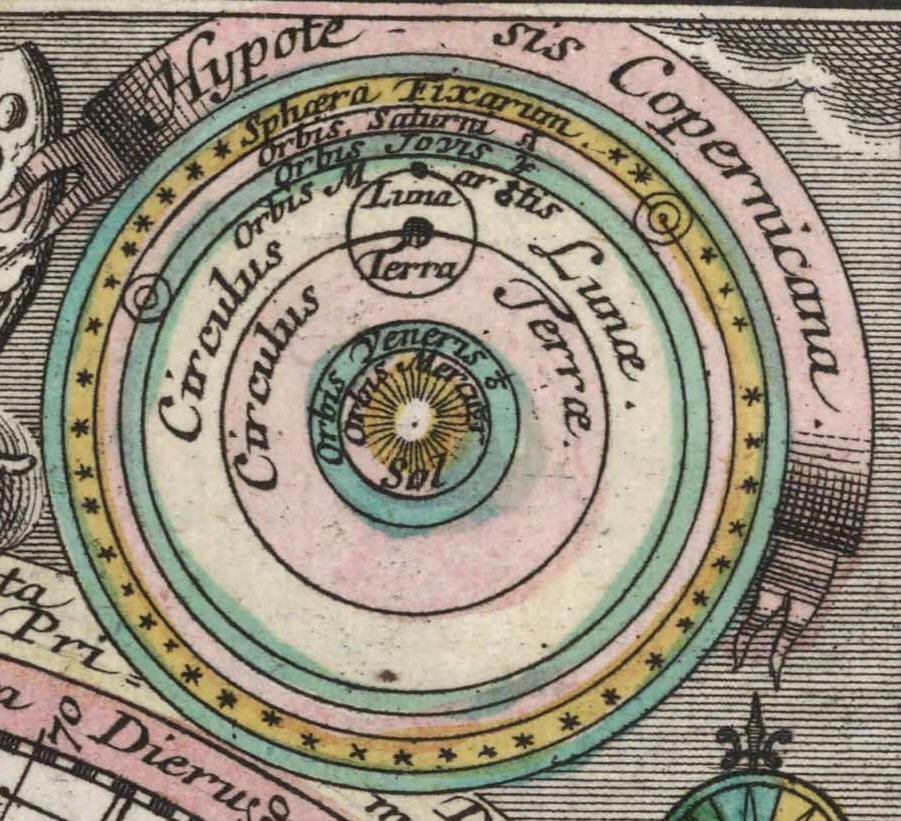 Hypotesis Copernicana.
Sphæra Fixarum
Orbis Saturni ♄
Orbis Jovis ♃
Orbis Martis ♂
Luna
Terra
Circulus Lunæ.
Circulus Terræ.
Orbis Veneris ♀
Orbis Mercurii
Sol
ta
Pri=
a
70
Dierum